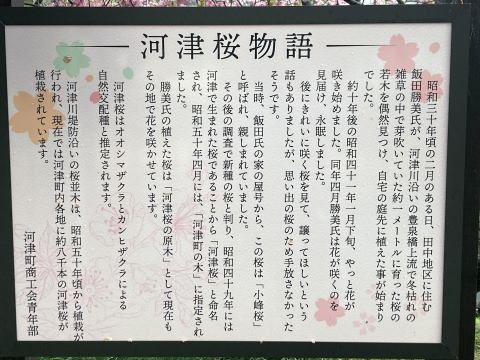 河津桜物語
昭和三十年頃の二月のある日、田中地区に住む
飯田勝美氏が、河津川沿いの豊泉橋上流で冬枯れの
雑草の中で芽吹いていた約一メートルに育った桜の
若木を偶然見つけ、自宅の庭先に植えた事が始まり
でした。
約十年後の昭和四十一年一月下旬、やっと花が
咲き始めました。同年四月勝美氏は花が咲くのを
見届け、永眠しました。
後にきれいに咲く桜を見て、譲ってほしいという
話もありましたが、思い出の桜のため手放さなかった
そうです。
当時、飯田氏の家の屋号から、この桜は「小峰桜」
と呼ばれ、親しまれていました。
その後の調査で新種の桜と判り、昭和四十九年には
河津で生まれた桜であることから「河津桜」と命名
され、昭和五十年四月には、「河津町の木」に指定され
ました。
勝美氏の植えた桜は「河津桜の原木」として現在も
その地で花を咲かせています。
河津桜はオオシマザクラとカンヒザクラによる
自然交配種と推定されます。
河津川堤防沿いの桜並木は、昭和五十年頃から植栽が
行われ、現在では河津町内各地に約八千本の河津桜が
植栽されています。
河津町商工会青年部